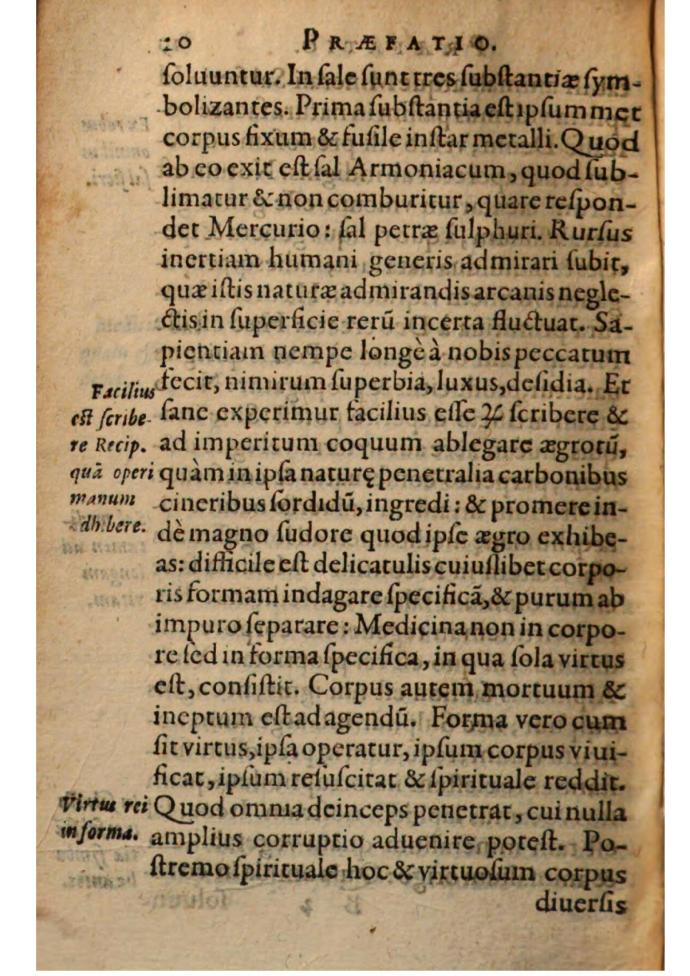 20 PRÆFATIO.
ſoluuntur. In ſale ſunt tres ſubſtantiæ ſym-
bolizantes. Prima ſubſtantia eſt ipſummet
corpus fixum & fuſile inſtar metalli. Quod
ab eo exit eſt ſal Armoniacum, quod ſub-
limatur & non comburitur, quare reſpon-
det Mercurio: ſal petræ ſulphuri. Rurſus
inertiam humani generis admirari ſubit,
quæ iſtis naturæ admirandis arcanis negle-
ctis in ſuperficie rerū incerta fluctuat. Sa-
pientiam nempe longè à nobis peccatum
fecit, nimirum ſuperbia, luxus, deſidia. Et
ſane experimur facilius eſſe ℞ ſcribere &
ad imperitum coquum ablegare ægrotū,
quàm in ipſa naturę penetralia carbonibus
cineribus ſordidū, ingredi: & promere in-
dè magno ſudore quod ipſe ægro exhibe-
as: difficile eſt delicatulis cuiuſlibet corpo-
ris formam indagare ſpecificā, & purum ab
impuro ſeparare: Medicina non in corpo-
re ſed in forma ſpecifica, in qua ſola virtus
eſt, conſiſtit. Corpus autem mortuum &
ineptum eſt ad agendū. Forma vero cum
ſit virtus, ipſa operatur, ipſum corpus viui-
ficat, ipſum reſuſcitat & ſpirituale reddit.
Quod omnia deinceps penetrat, cui nulla
amplius corruptio aduenire poteſt. Po-
ſtremo ſpirituale hoc & virtuoſum corpus
diuerſis
Facilius
eſt ſcribe-
re Recip.
quā operi
manum
adhibere.
Virtus rei
in forma.